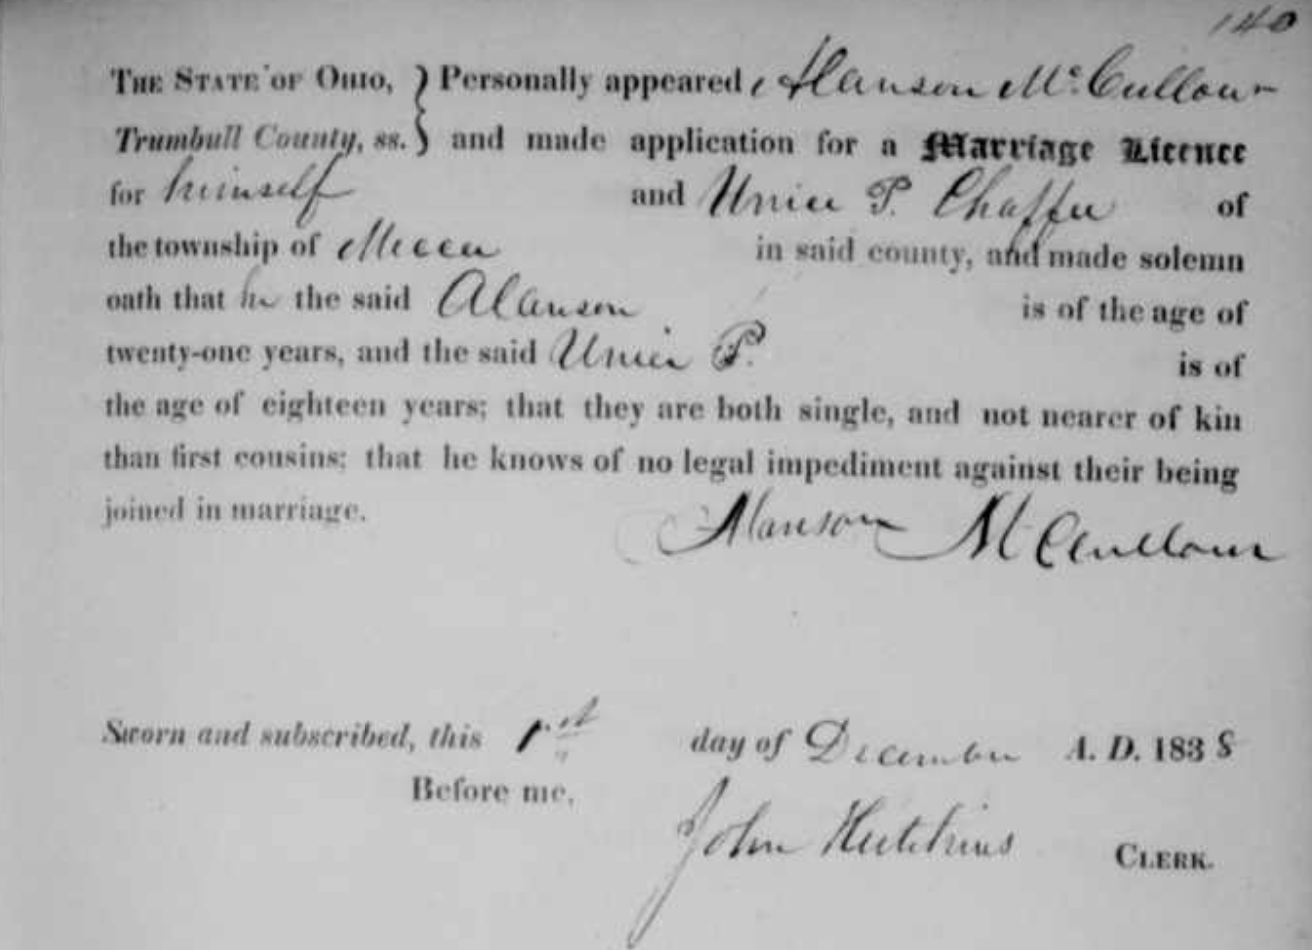 140
THE STATE OF OHIO, } Personally appeared Alanson McCullour
Trumbull County, ss. } and made application for a Marriage Licence
for himself and Unice P. Chaffee of
the township of Mecca in said county, and made solemn
oath that he the said Alanson is of the age of
twenty-one years, and the said Unice P. is of
the age of eighteen years; that they are both single, and not nearer of kin
than first cousins; that he knows of no legal impediment against their being
joined in marriage.
Alanson McCullour
Sworn and subscribed, this 1st day of December A. D. 1838
Before me,
John Hutchins CLERK.